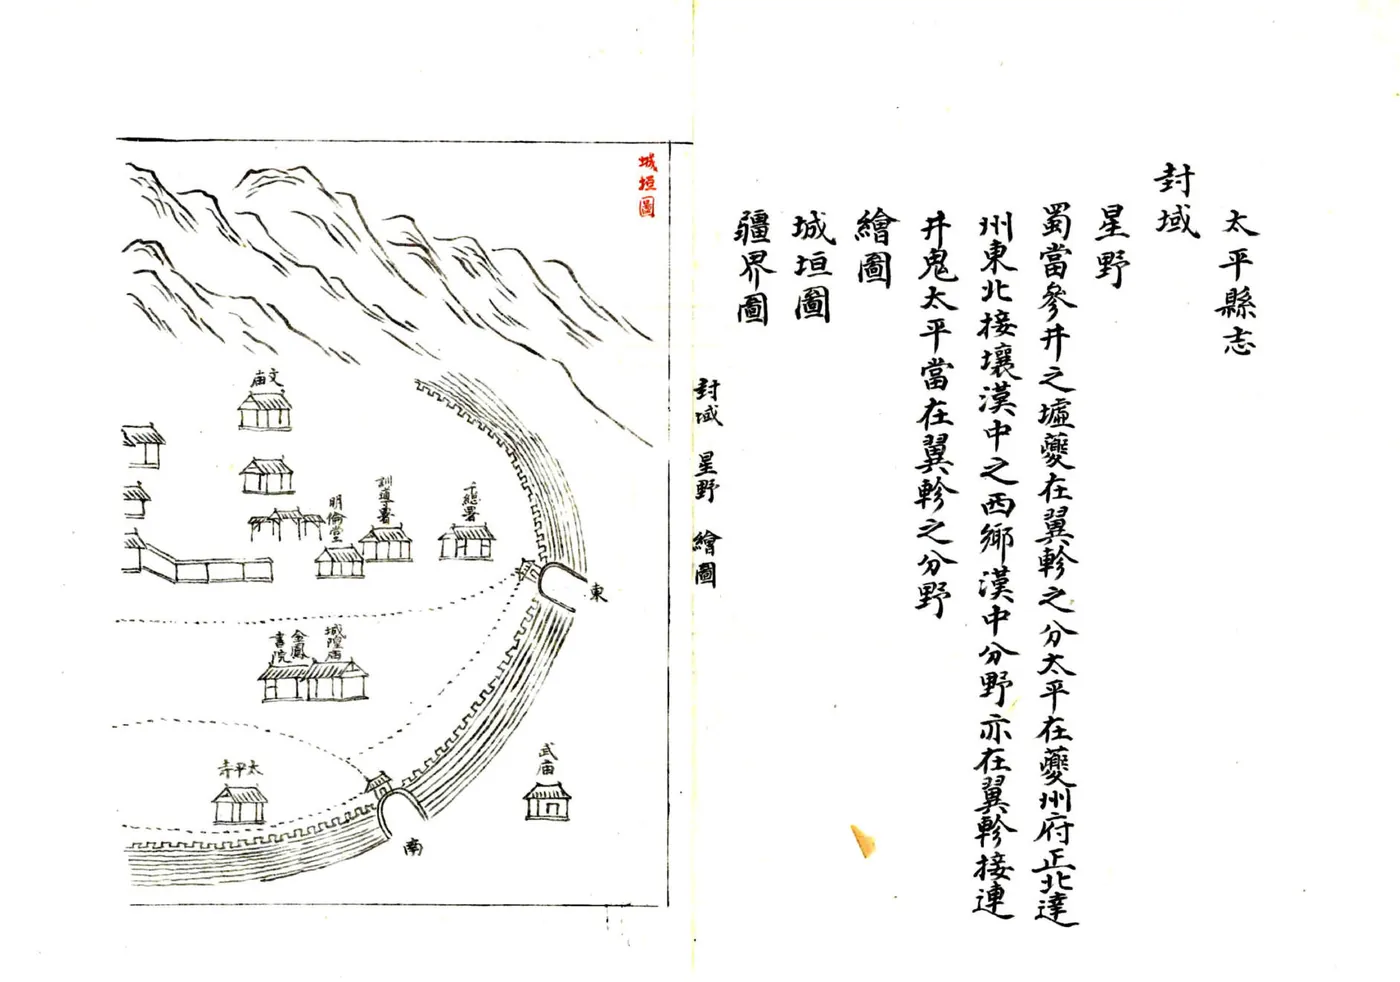 太平縣志
封域
星野
蜀當參井之墟夔在翼軫之分太平在夔州府正北達
州東北接壤漢中之西鄉漢中分野亦在翼軫接連
井鬼太平當在翼軫之分野
繪圖
城垣圖
疆界圖
封域 星野 繪圖
城垣圖
文庙
千總署
訓導署
明倫堂
東
城隍庙
金鳳書院
武庙
太平寺
南